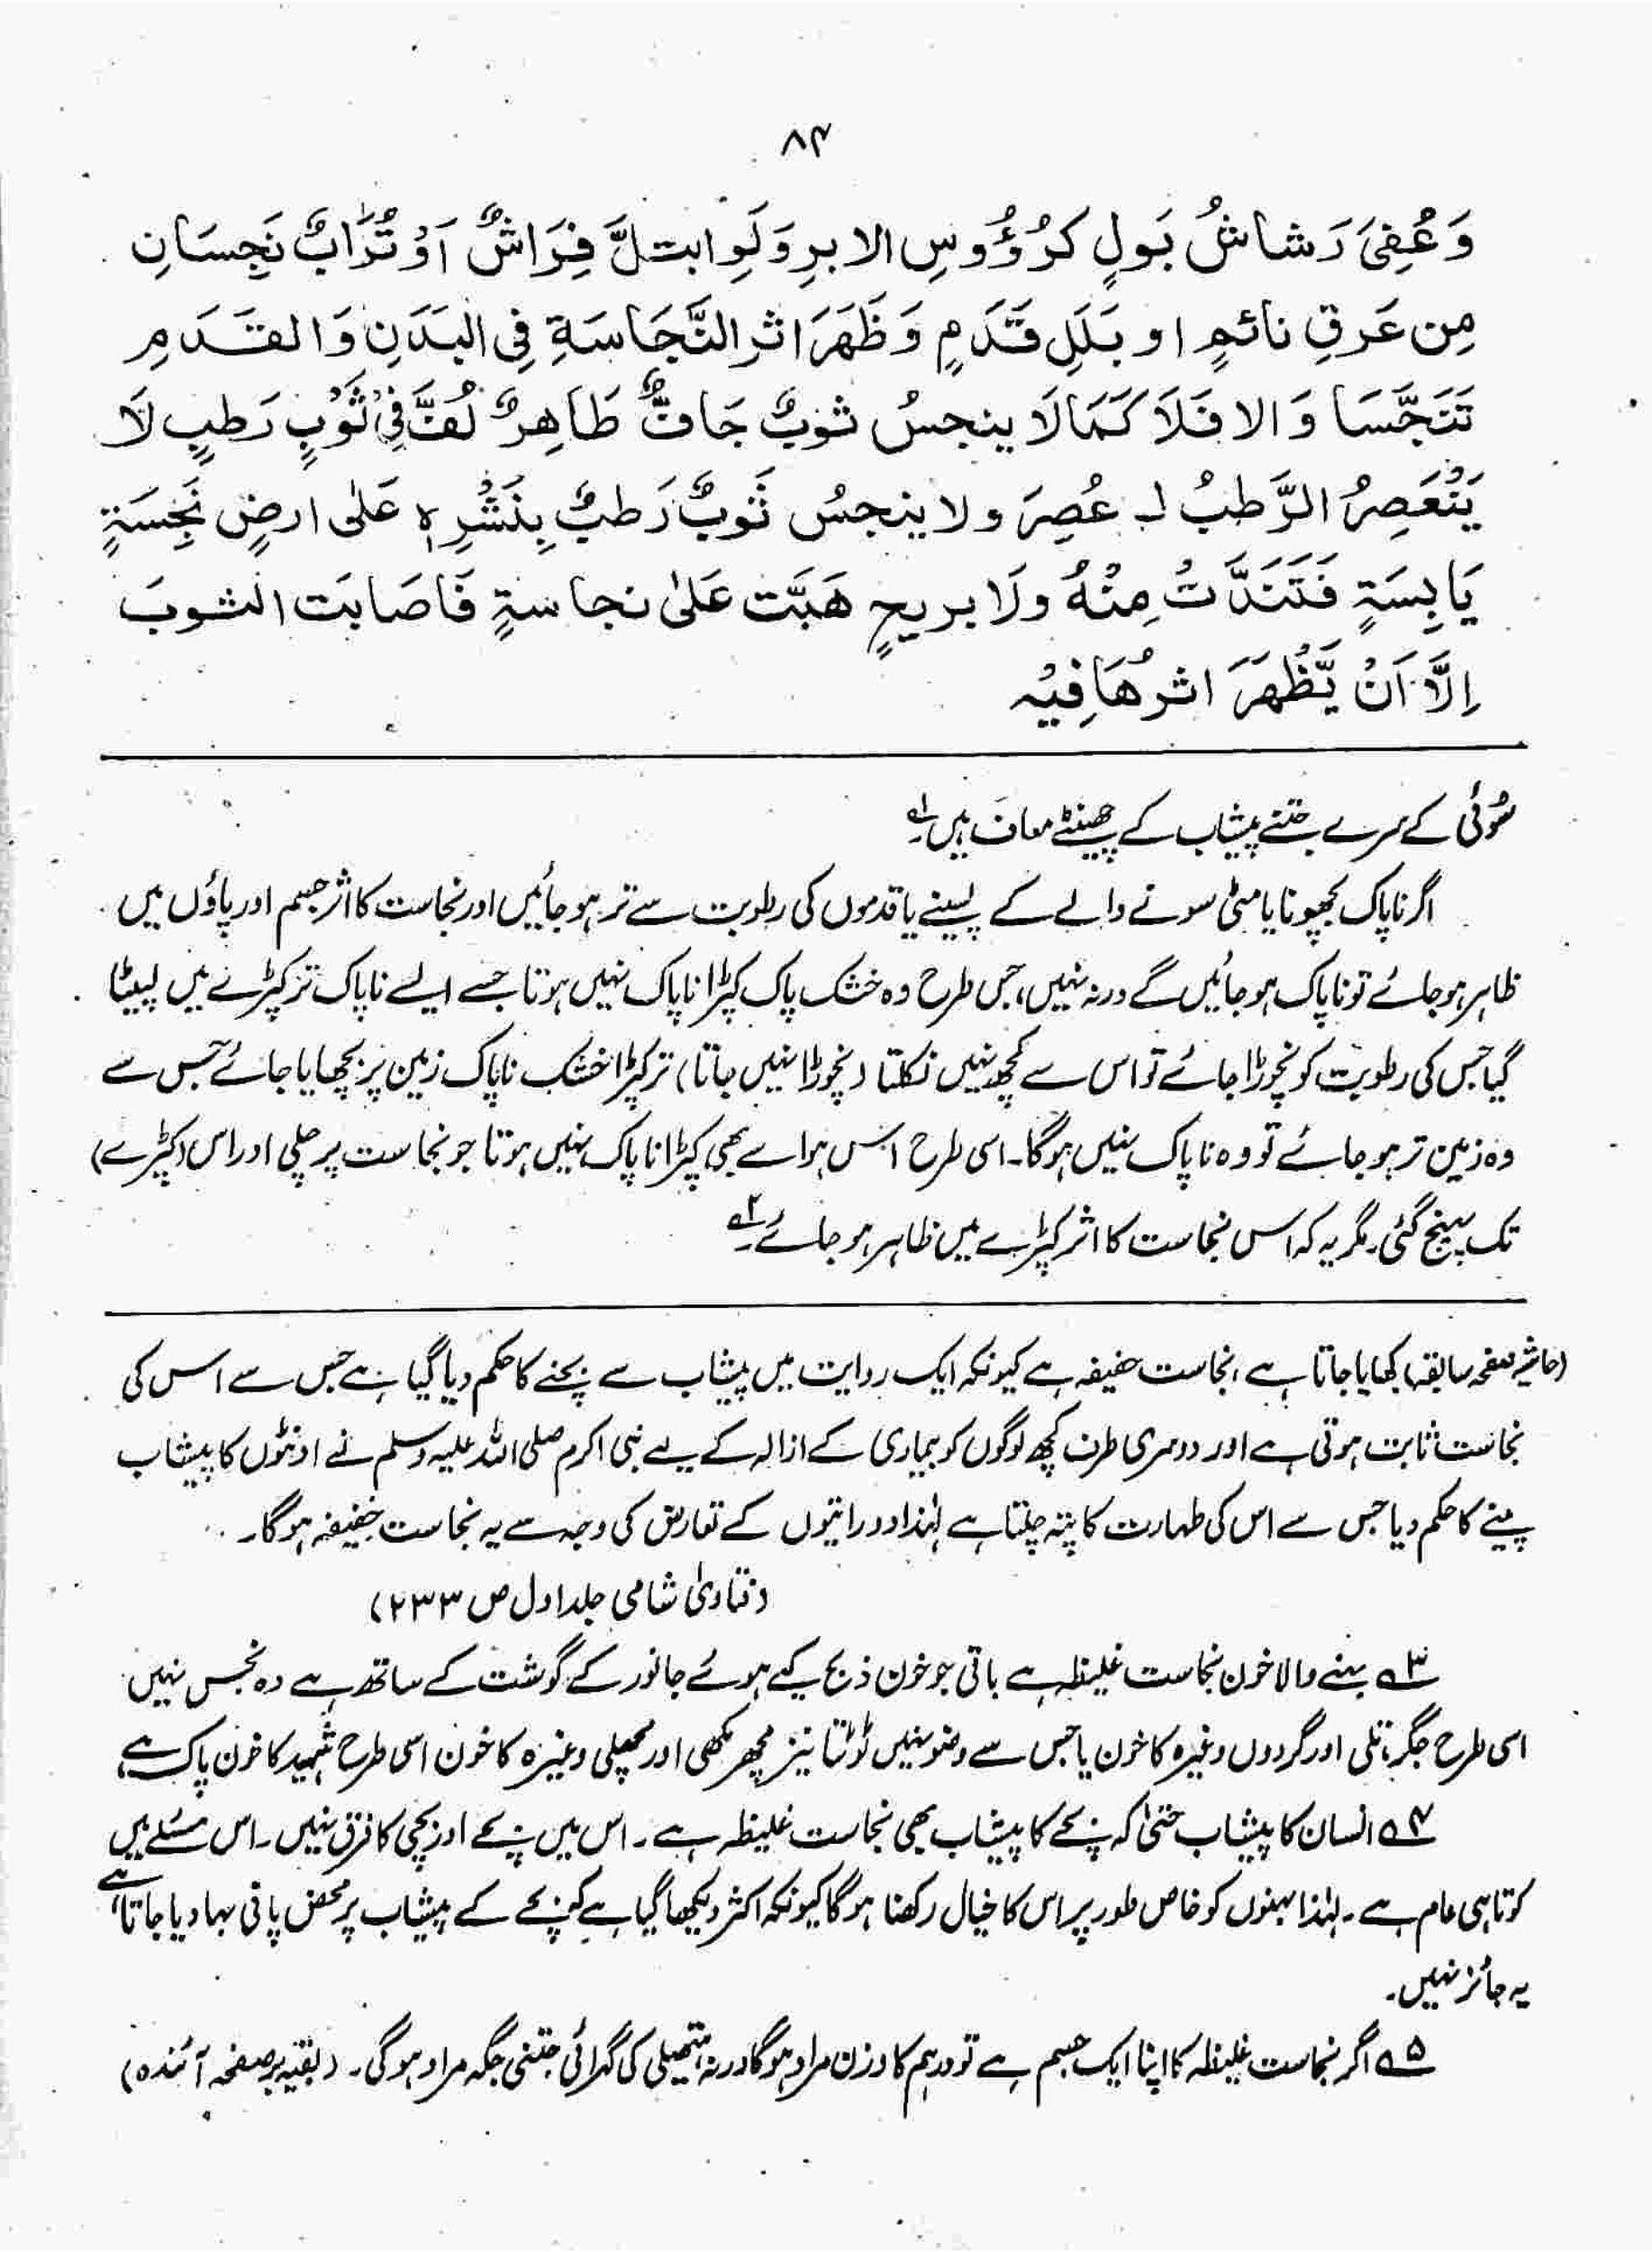 ۸۴
وَعُفِیَ رَشاشُ بَولٍ کَرُؤُوسِ الابرِ وَلَوِ ابتلَّ فِرَاشٌ اَوْ تُرَابٌ نَجِسَانِ
مِن عَرقِ نائمٍ او بَلَلِ قَدَمٍ وَظَهَرَ اثر النَّجَاسَةِ فِی البَدَنِ وَالقَدَمِ
تَنَجَّسَا وَالا فَلَا کَمَا لَا ینجسُ ثوبٌ جَافٌّ طَاهِرٌ لُفَّ فِیْ ثَوْبٍ رَطبٍ لَا
یَنْعَصِرُ الرَّطبُ لو عُصِرَ ولا ینجسُ ثَوبٌ رَطبٌ بِنَشْرِہٖ عَلٰی ارضٍ نَجِسَةٍ
یَابِسَةٍ فَتَنَدَّتْ مِنْهُ ولَا بریحٍ هَبَّت عَلٰی نجاسةٍ فَاصَابَت الثوبَ
اِلَّا اَنْ یَّظْهَرَ اثرُهَا فِیْہ
سُوئی کے سرے جتنے پیشاب کے چھینٹے معاف ہیں۔۱؎
اگر ناپاک بچھونا یا مٹی سونے والے کے پسینے یا قدموں کی رطوبت سے تر ہو جائیں اور نجاست کا اثر جسم اور پاؤں میں
ظاہر ہو جائے تو ناپاک ہو جائیں گے ورنہ نہیں، جس طرح وہ خشک پاک کپڑا ناپاک نہیں ہوتا جسے ایسے ناپاک تر کپڑے میں لپیٹا
گیا جس کی رطوبت کو نچوڑا جائے تو اس سے کچھ نہیں نکلتا (نچوڑا نہیں جاتا) تر کپڑا خشک ناپاک زمین پر بچھایا جائے جس سے
وہ زمین تر ہو جائے تو وہ ناپاک نہیں ہوگا۔ اسی طرح اس ہوا سے بھی کپڑا ناپاک نہیں ہوتا جو نجاست پر چلی اور اس (کپڑے)
تک پہنچ گئی۔ مگر یہ کہ اس نجاست کا اثر کپڑے میں ظاہر ہو جائے۔۲؎
(حاشیہ صفحہ سابقہ) کھایا جاتا ہے، نجاست خفیفہ ہے کیونکہ ایک روایت میں پیشاب سے بچنے کا حکم دیا گیا ہے جس سے اس کی
نجاست ثابت ہوتی ہے اور دوسری طرف کچھ لوگوں کو بیماری کے ازالہ کے لیے نبی اکرم صلی اللہ علیہ وسلم نے اونٹوں کا پیشاب
پینے کا حکم دیا جس سے اس کی طہارت کا پتہ چلتا ہے لہٰذا دو رائتوں کے تعارض کی وجہ سے یہ نجاست خفیفہ ہوگا۔
(فتاویٰ شامی جلد اول ص ۲۳۳)
۳؎ بہنے والا خون نجاست غلیظہ ہے باقی جو خون ذبح کیے ہوئے جانور کے گوشت کے ساتھ ہے وہ نجس نہیں
اسی طرح جگر، تلی اور گردوں وغیرہ کا خون یا جس سے وضو نہیں ٹوٹتا نیز مچھر مکھی اور مچھلی وغیرہ کا خون اسی طرح شہید کا خون پاک ہے،
۴؎ انسان کا پیشاب حتیٰ کہ بچے کا پیشاب بھی نجاست غلیظہ ہے۔ اس میں بچے اور بچی کا فرق نہیں۔ اس مسئلے میں
کوتاہی عام ہے۔ لہٰذا بہنوں کو خاص طور پر اس کا خیال رکھنا ہوگا کیونکہ اکثر دیکھا گیا ہے کہ بچے کے پیشاب پر محض پانی بہا دیا جاتا ہے
یہ جائز نہیں۔
۵؎ اگر نجاست غلیظہ کا اپنا ایک جسم ہے تو درہم کا وزن مراد ہوگا ورنہ ہتھیلی کی گہرائی جتنی جگہ مراد ہوگی۔ (بقیہ برصفحہ آئندہ)